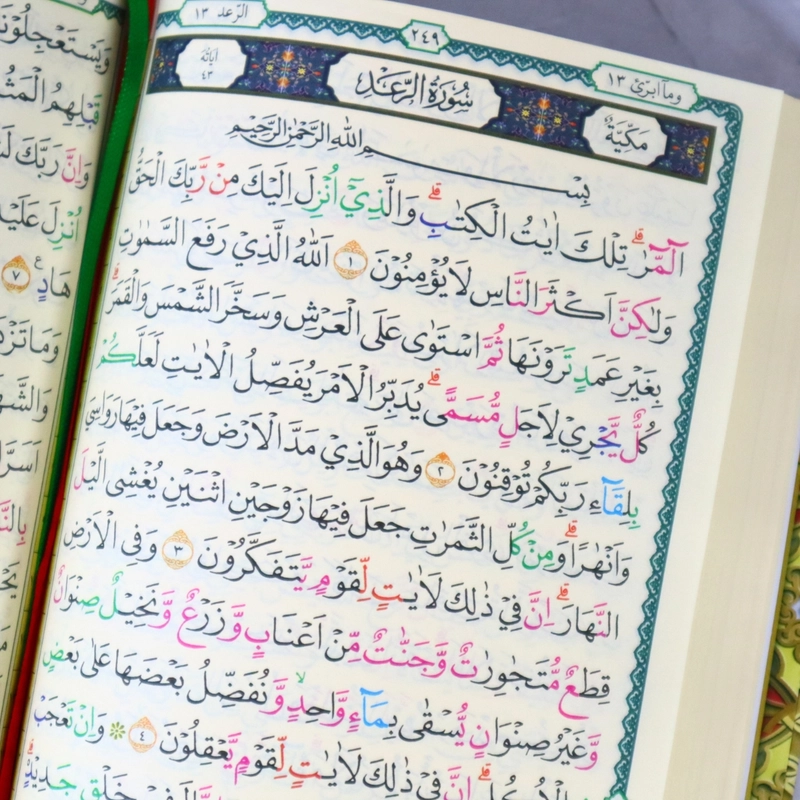 الرّعد ١٣
٢٤٩
وما ابرئ ١٣
اٰيَاتُهَا ٤٣
سُورَةُ الرَّعْدِ
مَكِّيَّةٌ
بِسْمِ اللهِ الرَّحْمٰنِ الرَّحِيْمِ
الٓمّٓرٰ ۗ تِلْكَ اٰيٰتُ الْكِتٰبِ ۗ وَالَّذِيْٓ اُنْزِلَ اِلَيْكَ مِنْ رَّبِّكَ الْحَقُّ
وَلٰكِنَّ اَكْثَرَ النَّاسِ لَا يُؤْمِنُوْنَ ١ اَللّٰهُ الَّذِيْ رَفَعَ السَّمٰوٰتِ
بِغَيْرِ عَمَدٍ تَرَوْنَهَا ثُمَّ اسْتَوٰى عَلَى الْعَرْشِ وَسَخَّرَ الشَّمْسَ وَالْقَمَرَ ۗ
كُلٌّ يَّجْرِيْ لِاَجَلٍ مُّسَمًّى ۗ يُدَبِّرُ الْاَمْرَ يُفَصِّلُ الْاٰيٰتِ لَعَلَّكُمْ
بِلِقَاۤءِ رَبِّكُمْ تُوْقِنُوْنَ ٢ وَهُوَ الَّذِيْ مَدَّ الْاَرْضَ وَجَعَلَ فِيْهَا رَوَاسِيَ
وَاَنْهٰرًا ۗ وَمِنْ كُلِّ الثَّمَرٰتِ جَعَلَ فِيْهَا زَوْجَيْنِ اثْنَيْنِ يُغْشِى الَّيْلَ
النَّهَارَ ۗ اِنَّ فِيْ ذٰلِكَ لَاٰيٰتٍ لِّقَوْمٍ يَّتَفَكَّرُوْنَ ٣ وَفِى الْاَرْضِ
قِطَعٌ مُّتَجٰوِرٰتٌ وَّجَنّٰتٌ مِّنْ اَعْنَابٍ وَّزَرْعٌ وَّنَخِيْلٌ صِنْوَانٌ
وَّغَيْرُ صِنْوَانٍ يُّسْقٰى بِمَاۤءٍ وَّاحِدٍ ۙ وَّنُفَضِّلُ بَعْضَهَا عَلٰى بَعْضٍ
فِى الْاُكُلِ ۗ اِنَّ فِيْ ذٰلِكَ لَاٰيٰتٍ لِّقَوْمٍ يَّعْقِلُوْنَ ٤ ۞ وَاِنْ تَعْجَبْ
خَلْقٍ جَدِيْدٍ ۗ
وَيَسْتَعْجِلُوْنَ
قَبْلِهِمُ الْمَثُ
وَاِنَّ رَبَّكَ لَ
اُنْزِلَ عَلَيْهِ
هَادٍ ٧
وَمَا تَزْدَ
وَالشَّهَ
اَسَرَّ
بِالنَّ